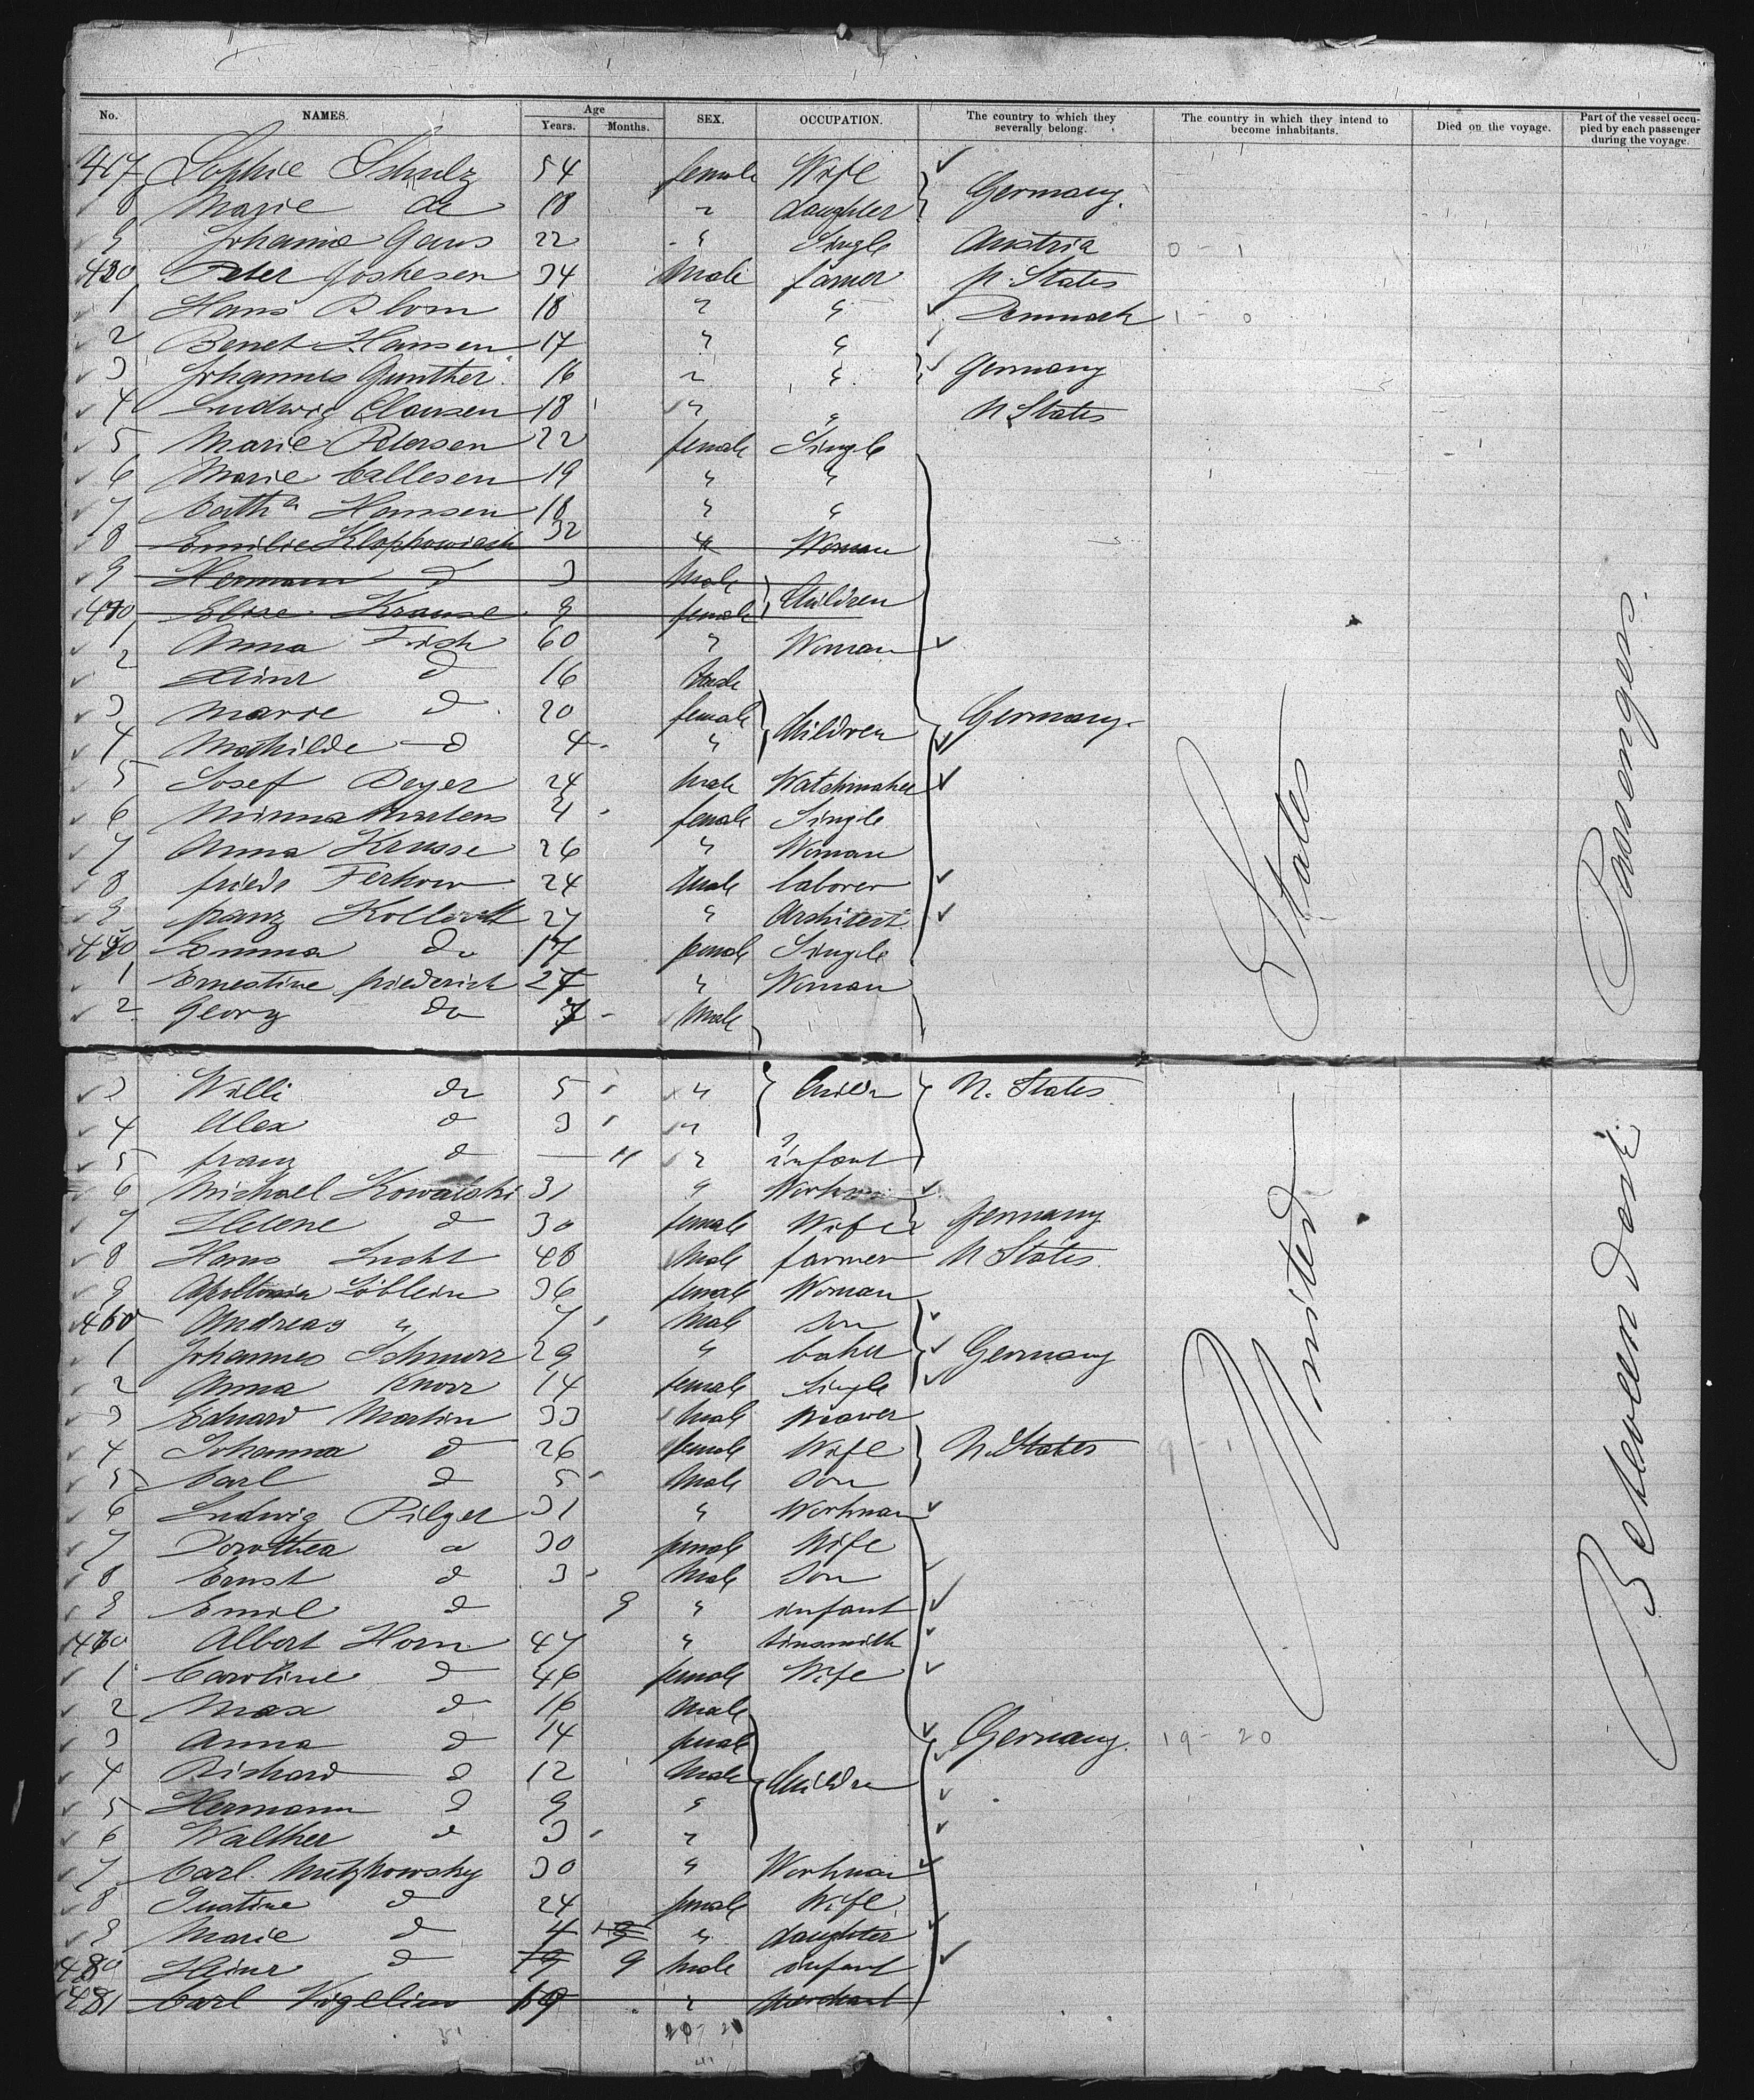 No. NAMES. Age Years. Months. SEX. OCCUPATION. The country to which they severally belong. The country in which they intend to become inhabitants. Died on the voyage. Part of the vessel occupied by each passenger during the voyage.
417 Sophie Schulz 54 female Wife
8 Marie do 18 " daughter Germany.
9 Johanna Gans 22 " Single Austria 0 - 1
420 Peter 34 Male farmer U. States
1 Hans Blom 18 " " Denmark 1 - 0
2 Benet Hansen 17 " "
3 Johannes Gunther 16 " " Germany
4 Ludwig Clausen 18 " " U States
5 Marie Petersen 22 female Single
6 Marie Callesen 19 " "
7 Cath a Hansen 18 " "
8 Emilie 32 " Woman
9 Hermann d 3 Male
430 Elise Krause 9 female Children
1 Anna Fisch 60 " Woman
2 Heinr d 16 Male
3 Marie d 20 female Children Germany.
4 Mathilde d 4 "
5 Josef Dryer 24 Male Watchmaker
6 Minna Martens female Single
7 Anna Krusse 26 " Woman
8 friedr Ferkow 24 Male laborer
9 franz 27 " Architect
440 Emma do 17 female Single
1 Ernestine friederich 27 " Woman
2 Georg do 7 Male
3 Willi do 5 " Childr U. States
4 Alex d 3 "
5 franz d — 11 " infant
6 Michael Kowalski 31 " Workman
7 Helene d 30 female Wife Germany
8 Hans Lucht 48 Male farmer U States.
9 Apollonia Löblein 36 female Woman
460 Andreas " 7 Male Son
1 Johannes Schnurr 29 " baker Germany
2 Anna Knorr 14 female Single
3 Eduard Martin 33 Male Weaver
4 Johanna d 26 female Wife U. States
5 Carl d 5 Male Son
6 Ludwig Pilger 31 " Workman
7 Dorothea d 30 female Wife
8 Ernst d 3 Male Son
9 Emil d 9 " infant
470 Albert Horn 47 " tinsmith
1 Caroline d 46 female Wife
2 Max d 16 Male
3 Anna d 14 female Germany. 19 - 20
4 Richard d 12 Male Childre
5 Hermann d 9 "
6 Walther d 3 "
7 Carl Mutzkowsky 30 " Workman
8 Justine d 24 female Wife
9 Marie d 4 " daughter
480 Heinr d 9 Male infant
481 Carl Vigelius 19 " Merchant
United States
Between Deck Passengers.